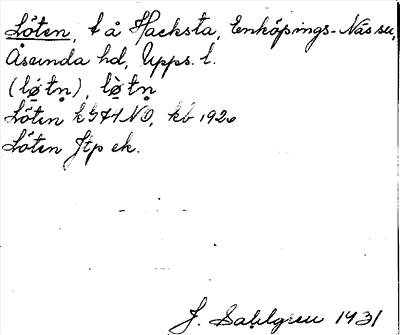 Löten, t å Hacksta, Enköpings-Näs sn,
Åsunda hd, Upps. l.
(lø̀tn̥), lø̀tn̥
Löten k G41 NO, kb 1926
Löten Jtp ek.
J. Sahlgren 1931